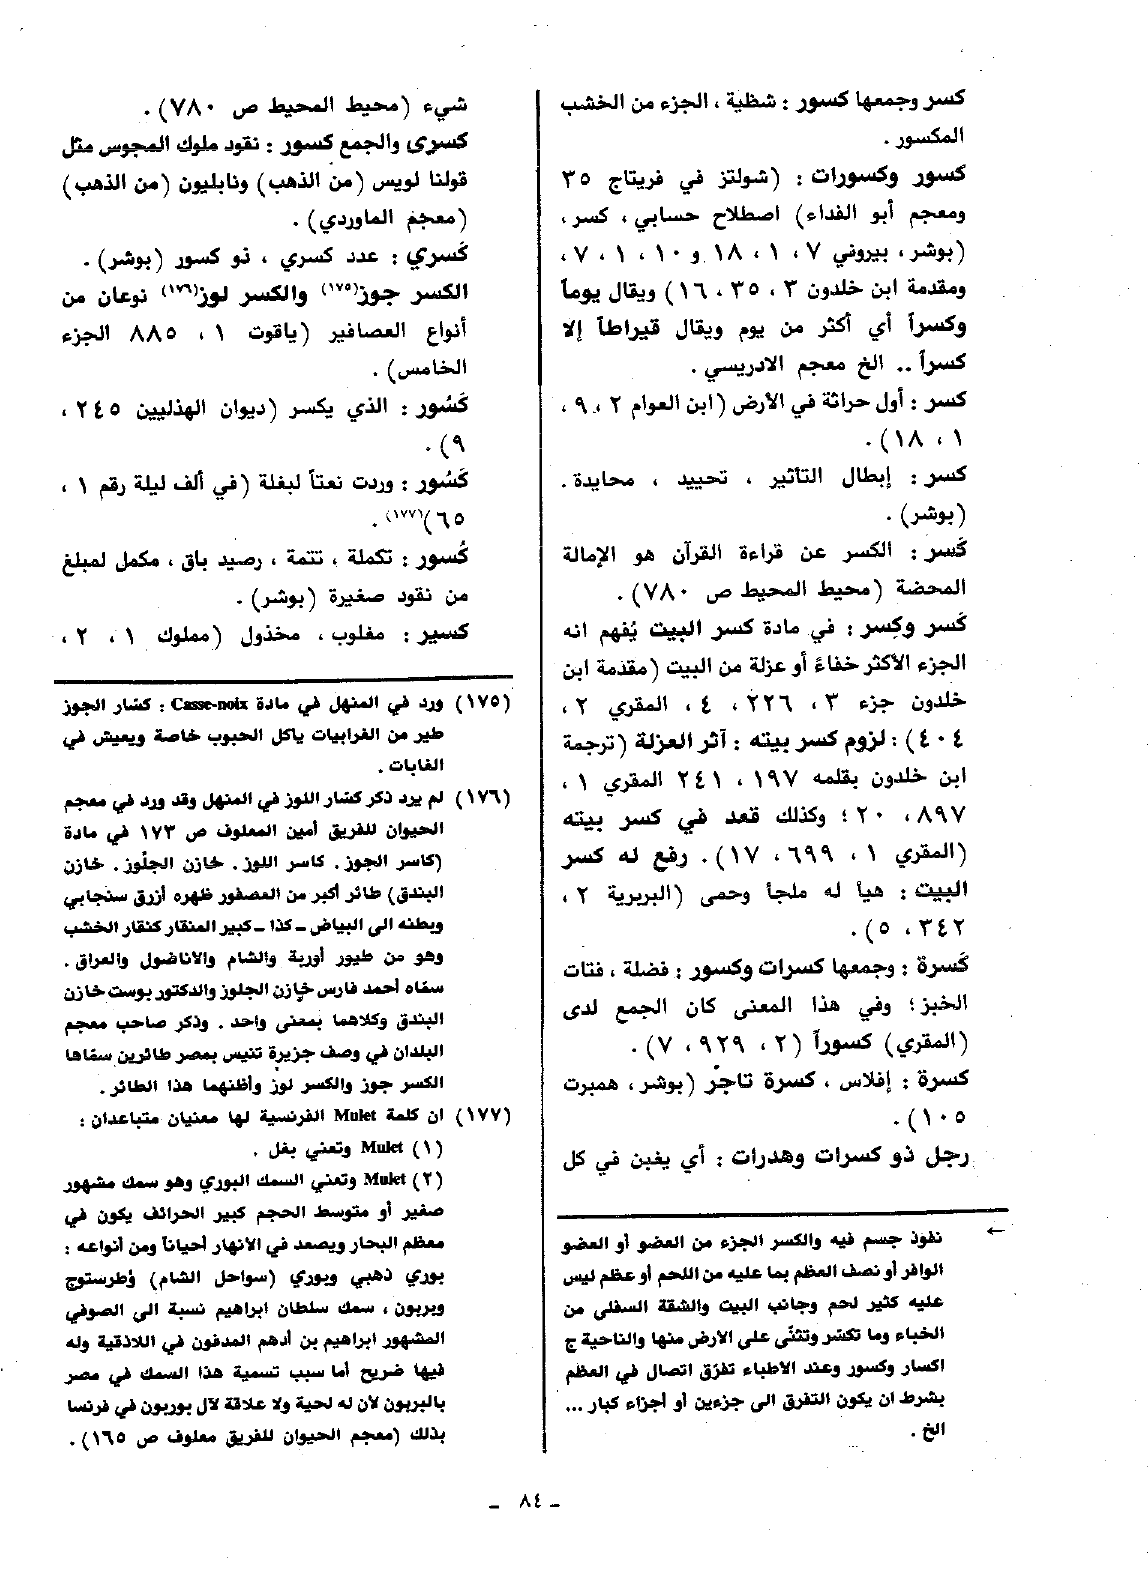 كسر وجمعها كسور : شظية ، الجزء من الخشب
المكسور .
كسور وكسورات : (شولتز في فريتاج ٣٥
ومعجم أبو الفداء) اصطلاح حسابي ، كسر ،
(بوشر ، بيروني ٧ ، ١ ، ١٨ و ١٠ ، ١ ، ٧ ،
ومقدمة ابن خلدون ٣ ، ٣٥ ، ١٦) ويقال يوماً
وكسراً أي أكثر من يوم ويقال قيراطاً إلا
كسراً .. الخ معجم الادريسي .
كسر : أول حراثة في الأرض (ابن العوام ٢ ، ٩ ،
١ ، ١٨) .
كسر : إبطال التأثير ، تحييد ، محايدة .
(بوشر) .
كَسر : الكسر عن قراءة القرآن هو الإمالة
المحضة (محيط المحيط ص ٧٨٠) .
كَسر وكِسر : في مادة كسر البيت يُفهم انه
الجزء الأكثر خفاءً أو عزلة من البيت (مقدمة ابن
خلدون جزء ٣ ، ٢٢٦ ، ٤ ، المقري ٢ ،
٤٠٤) : لزوم كسر بيته : آثر العزلة (ترجمة
ابن خلدون بقلمه ١٩٧ ، ٢٤١ المقري ١ ،
٨٩٧ ، ٢٠ ؛ وكذلك قعد في كسر بيته
(المقري ١ ، ٦٩٩ ، ١٧) . رفع له كسر
البيت : هيأ له ملجأ وحمى (البربرية ٢ ،
٣٤٢ ، ٥) .
كَسرة : وجمعها كسرات وكسور : فضلة ، فتات
الخبز ؛ وفي هذا المعنى كان الجمع لدى
(المقري) كسوراً (٢ ، ٩٢٩ ، ٧) .
كسرة : إفلاس ، كسرة تاجر (بوشر ، همبرت
١٠٥) .
رجل ذو كسرات وهدرات : أي يغبن في كل
← نفوذ جسم فيه والكسر الجزء من العضو أو العضو
الوافر أو نصف العظم بما عليه من اللحم أو عظم ليس
عليه كثير لحم وجانب البيت والشقة السفلى من
الخباء وما تكسّر وتثنّى على الارض منها والناحية ج
اكسار وكسور وعند الاطباء تفرّق اتصال في العظم
بشرط ان يكون التفرق الى جزءين أو أجزاء كبار ...
الخ .
شيء (محيط المحيط ص ٧٨٠) .
كسرى والجمع كسور : نقود ملوك المجوس مثل
قولنا لويس (من الذهب) ونابليون (من الذهب)
(معجم الماوردي) .
كَسري : عدد كسري ، ذو كسور (بوشر) .
الكسر جوز(١٧٥) والكسر لوز(١٧٦) نوعان من
أنواع العصافير (ياقوت ١ ، ٨٨٥ الجزء
الخامس) .
كَسُور : الذي يكسر (ديوان الهذليين ٢٤٥ ،
٩) .
كَسُور : وردت نعتاً لبغلة (في ألف ليلة رقم ١ ،
٦٥)(١٧٧) .
كُسور : تكملة ، تتمة ، رصيد باق ، مكمل لمبلغ
من نقود صغيرة (بوشر) .
كسير : مغلوب ، مخذول (مملوك ١ ، ٢ ،
(١٧٥) ورد في المنهل في مادة Casse-noix : كسّار الجوز
طير من الغرابيات يأكل الحبوب خاصة ويعيش في
الغابات .
(١٧٦) لم يرد ذكر كسّار اللوز في المنهل وقد ورد في معجم
الحيوان للفريق أمين المعلوف ص ١٧٣ في مادة
(كاسر الجوز . كاسر اللوز . خازن الجلّوز . خازن
البندق) طائر أكبر من العصفور ظهره أزرق سنجابي
وبطنه الى البياض ـ كذا ـ كبير المنقار كنقار الخشب
وهو من طيور أوربة والشام والاناضول والعراق .
سمّاه أحمد فارس خازن الجلوز والدكتور بوست خازن
البندق وكلاهما بمعنى واحد . وذكر صاحب معجم
البلدان في وصف جزيرة تنيس بمصر طائرين سمّاها
الكسر جوز والكسر لوز وأظنهما هذا الطائر .
(١٧٧) ان كلمة Mulet الفرنسية لها معنيان متباعدان :
(١) Mulet وتعني بغل .
(٢) Mulet وتعني السمك البوري وهو سمك مشهور
صغير أو متوسط الحجم كبير الحرائف يكون في
معظم البحار ويصعد في الانهار أحياناً ومن أنواعه :
بوري ذهبي وبوري (سواحل الشام) وُطرستوج
وبربون ، سمك سلطان ابراهيم نسبة الى الصوفي
المشهور ابراهيم بن أدهم المدفون في اللاذقية وله
فيها ضريح أما سبب تسمية هذا السمك في مصر
بالبربون لأن له لحية ولا علاقة لآل بوربون في فرنسا
بذلك (معجم الحيوان للفريق معلوف ص ١٦٥) .
ـ ٨٤ ـ